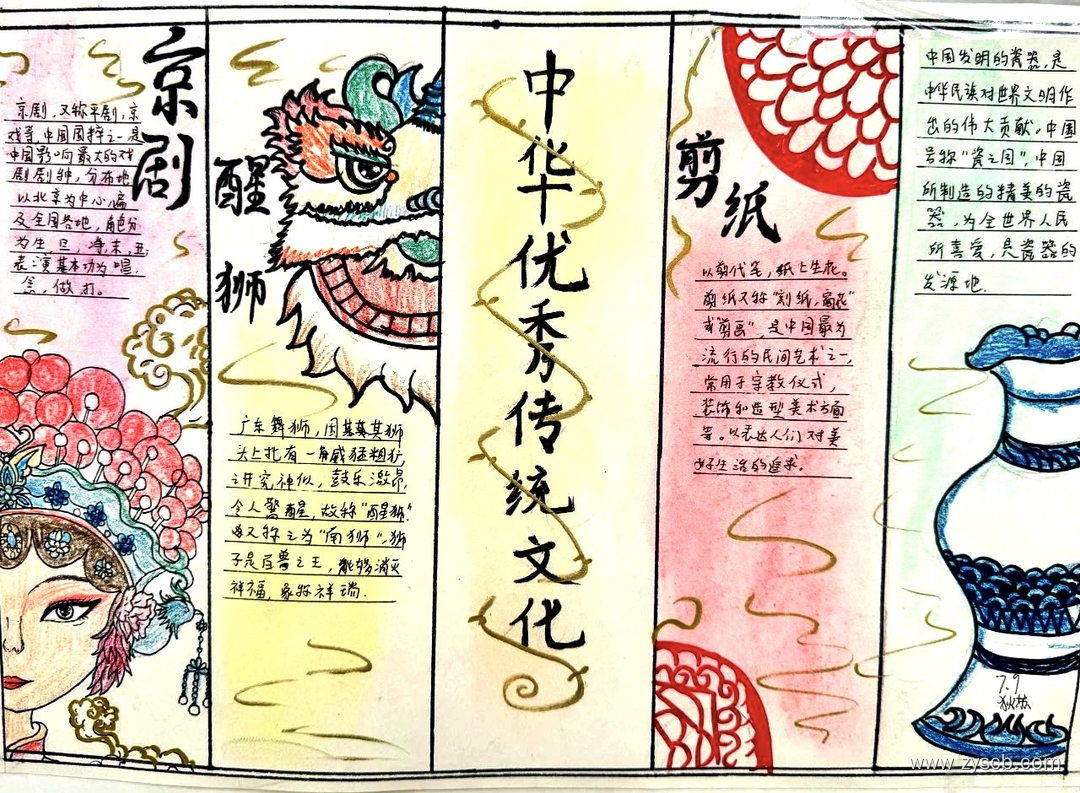 京剧
京剧,又称平剧,京
戏等,中国国粹之一是
中国影响最大的戏
剧剧种,分布地
以北京为中心,遍
及全国各地,角色分
为生,旦,净,末,丑,
表演基本功为唱,
念,做,打。
醒狮
广东舞狮,因其其狮
头上扎有一角威猛粗犷
讲究神似,鼓乐激昂
令人警醒,故称"醒狮"
又称之为"南狮",狮
子是百兽之王,能够消灭
祥福,象称祥瑞
中华优秀传统文化
剪纸
以剪代笔,纸上生花。
剪纸又称"刻纸,窗花"
或"剪画",是中国最为
流行的民间艺术之一,
常用于宗教仪式,
装饰和造型美术方面
等。以表达人们对美
好生活的追求。
中国发明的瓷器,是
中华民族对世界文明作
出的伟大贡献。中国
号称"瓷之国",中国
所制造的精美的瓷
器,为全世界人民
所喜爱,是瓷器的
发源地.
7.9
www.zyscb.com